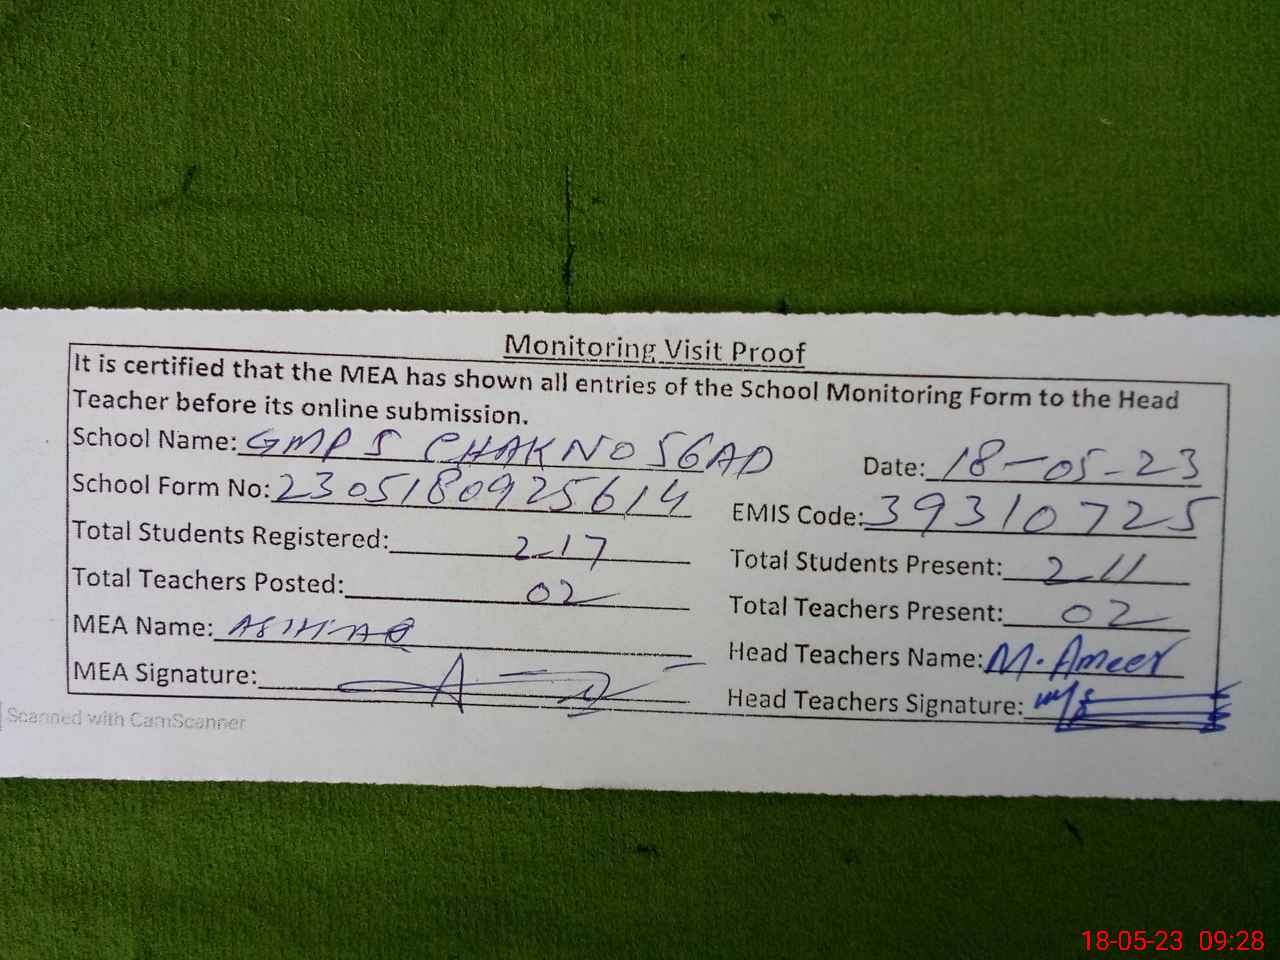 Monitoring Visit Proof
It is certified that the MEA has shown all entries of the School Monitoring Form to the Head
Teacher before its online submission.
School Name: GMPS CHAK NO 56AD Date: 18-05-23
School Form No: 2305180925614 EMIS Code: 39310725
Total Students Registered: 217 Total Students Present: 211
Total Teachers Posted: 02 Total Teachers Present: 02
MEA Name: ASHFAQ Head Teachers Name: M. Ameer
MEA Signature: Head Teachers Signature:
Scanned with CamScanner
18-05-23 09:28